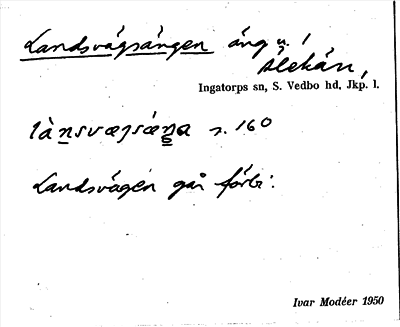 Landsvägsängen äng u. /
Alekån,
Ingatorps sn, S. Vedbo hd, Jkp. l.
s. 160
Landsvägen går förbi.
Ivar Modéer 1950